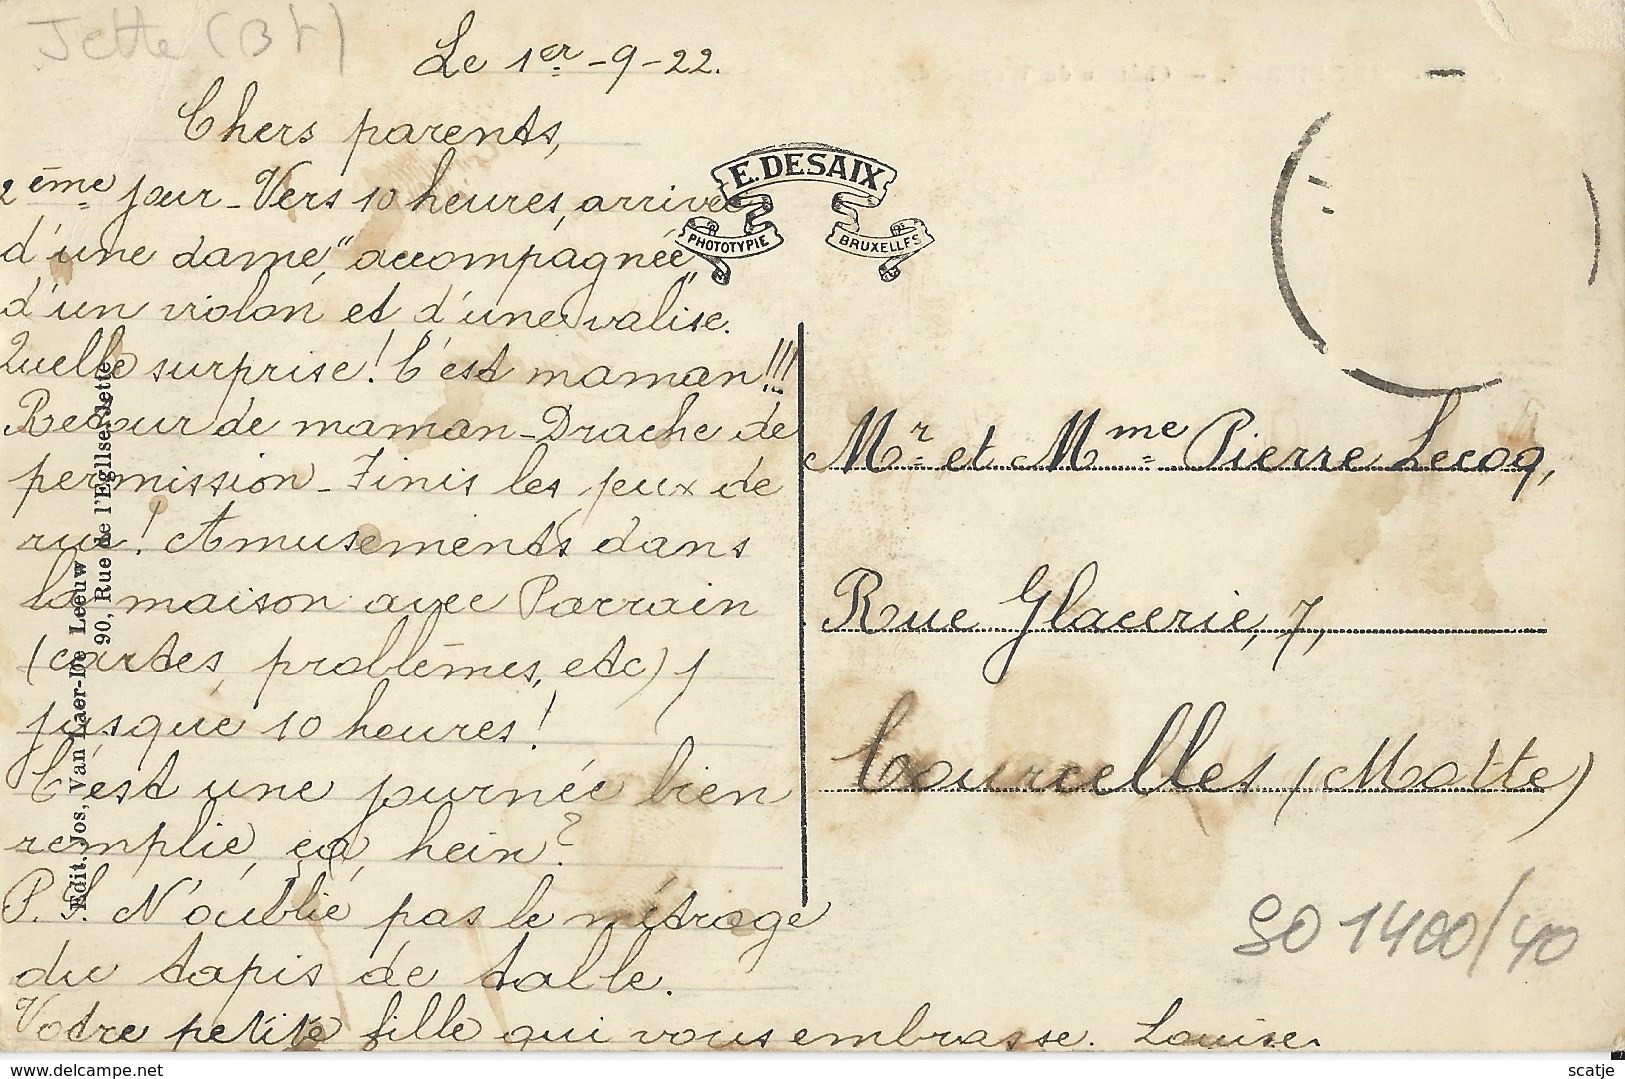 Jette (Bt)
Le 1er -9-22.
Chers parents,
2ème jour - Vers 10 heures, arrivée
d'une dame, "accompagnée"
d'un violon et d'une valise.
Quelle surprise! C'est maman!!!
Retour de maman - Drache de
permission - Finis les jeux de
rue! Amusements dans
la maison avec Parrain
(cartes, problèmes, etc)
jusque 10 heures!
C'est une journée bien
remplie, ça, hein?
P.S. N'oublie pas le métrage
du tapis de table.
Votre petite fille qui vous embrasse. Louise.
E. DESAIX
PHOTOTYPIE BRUXELLES
Edit. Jos, Van Laer-De Leeuw
90, Rue de l'Eglise Jette
Mr et Mme Pierre Lecoq,
Rue Glacerie, 7,
Courcelles (Motte)
SO 1400/40
www.delcampe.net
scatje